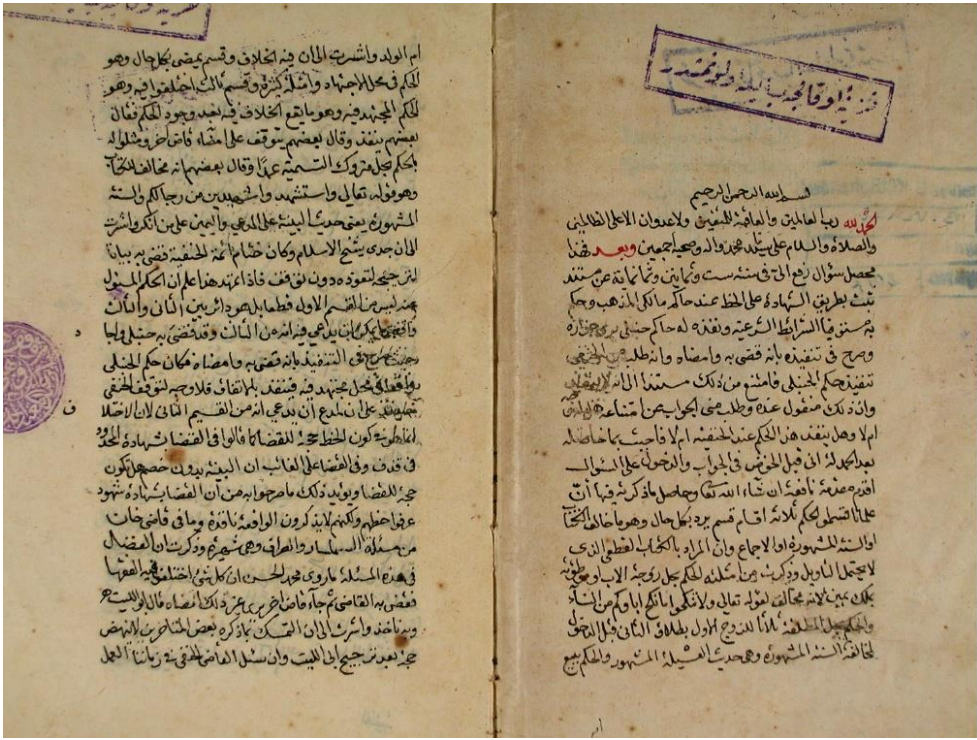 بسم الله الرحمن الرحيم
الحمد لله رب العالمين والعاقبة للمتقين ولا عدوان الا على الظالمين
والصلاة والسلام على سيدنا محمد واله وصحبه اجمعين وبعد فهذا
محصل سؤال رفع الي في سنة ست وثمانين وثمانمائة عن مستند
ثبت بطريق الشهادة على الخط عند حاكم مالكي المذهب وحكم
به مستوفيا الشرائط الشرعية ونفذه له حاكم حنبلي يرى جوازه
وصرح في تنفيذه بانه قضى به وامضاه وانه طلب من الحنفي
تنفيذ حكم الحنبلي فامتنع من ذلك مستندا الى انه
وان ذلك منقول عنده وطلب مني الجواب عن امتناعه
ام لا وهل ينفذ هذا الحكم عند الحنفية ام لا فاجبت بما حاصله
بعد الحمد لله اني قبل الخوض في الجواب والدخول على السؤال
اقدم مقدمة نافعة ان شاء الله تعا وحاصل ماذكرته فيها ان
علمائنا قسموا الحكم ثلاثة اقسام قسم يرد بكل حال وهو ما خالف الكتاب
او السنة المشهورة او الاجماع وان المراد بالكتاب القطعي الذي
لا يحتمل التاويل وذكرت من امثلته الحكم بحل زوجة الاب او موطوئته
بملك يمين لانه مخالف لقوله تعالى ولا تنكحوا ما نكح اباوكم من النساء
والحكم بحل المطلقة ثلاثا للزوج الاول بطلاق الثاني قبل الدخول
لمخالفة السنة المشهورة وهي حديث العسيلة المشهور والحكم ببيع
ام الولد واشرت الى ان فيه الخلاف وقسم يمضي بكل حال وهو
الحكم في محل الاجتهاد وامثلته كثيرة وقسم ثالث اختلفوا فيه وهو
الحكم المجتهد فيه وهو ما يقع الخلاف فيه بعد وجود الحكم فقال
بعضهم ينفذ وقال بعضهم يتوقف على امضاء قاض اخر ومثلوا له
بالحكم بحل متروك التسمية عمدا وقال بعضهم انه مخالف للكتاب
وهو قوله تعالى واستشهدوا شهيدين من رجالكم والسنة
المشهورة يعني حديث البينة على المدعي واليمين على من انكر واشرت
الى ان جدي شيخ الاسلام وكان ختام ائمة الحنفية قضى به بيانا
لترجيحه لنفوذه دون توقف فاذا تمهد هذا علم ان الحكم المسئول
عنه ليس من القسم الاول قطعا بل هو دائر بين الثاني والثالث
يمكن ان يدعي فيه انه من الثالث وقد قضى به حنبلي
في التنفيذ بانه قضى به وامضاه فكان حكم الحنبلي
في محل مجتهد فيه فينفذ بالاتفاق فلا وجه لتوقف الحنفي
على ان لمدع ان يدعي انه من القسم الثاني لان الاختلاف
في كون الخط حجة للقضا كما قالوا في القضا بشهادة المحدود
في قذف وفي القضا على الغائب ان البينة بدون خصم هل تكون
حجة للقضا ويؤيد ذلك ما صرحوا به من ان القضا بشهادة شهود
عرفوا خطهم ولكنهم لا يذكرون الواقعة نافذة وما في قاضي خان
من مسئلة السمسار والصراف وهي شهيرة وذكرت ان الفضل
في هذه المسئلة ما روى محمد الحسن ان كل شئ اختلف فيه الفقها
فقضى به القاضي ثم جاء قاض اخر يرى غير ذلك امضاه قال ابو الليث
وبه ناخذ واشرت الى ان التمسك بما ذكره بعض المتاخرين لا ينهض
حجة بعد ترجيح ابي الليث وان سئل القاضي الحنفي في زماننا العمل
ام